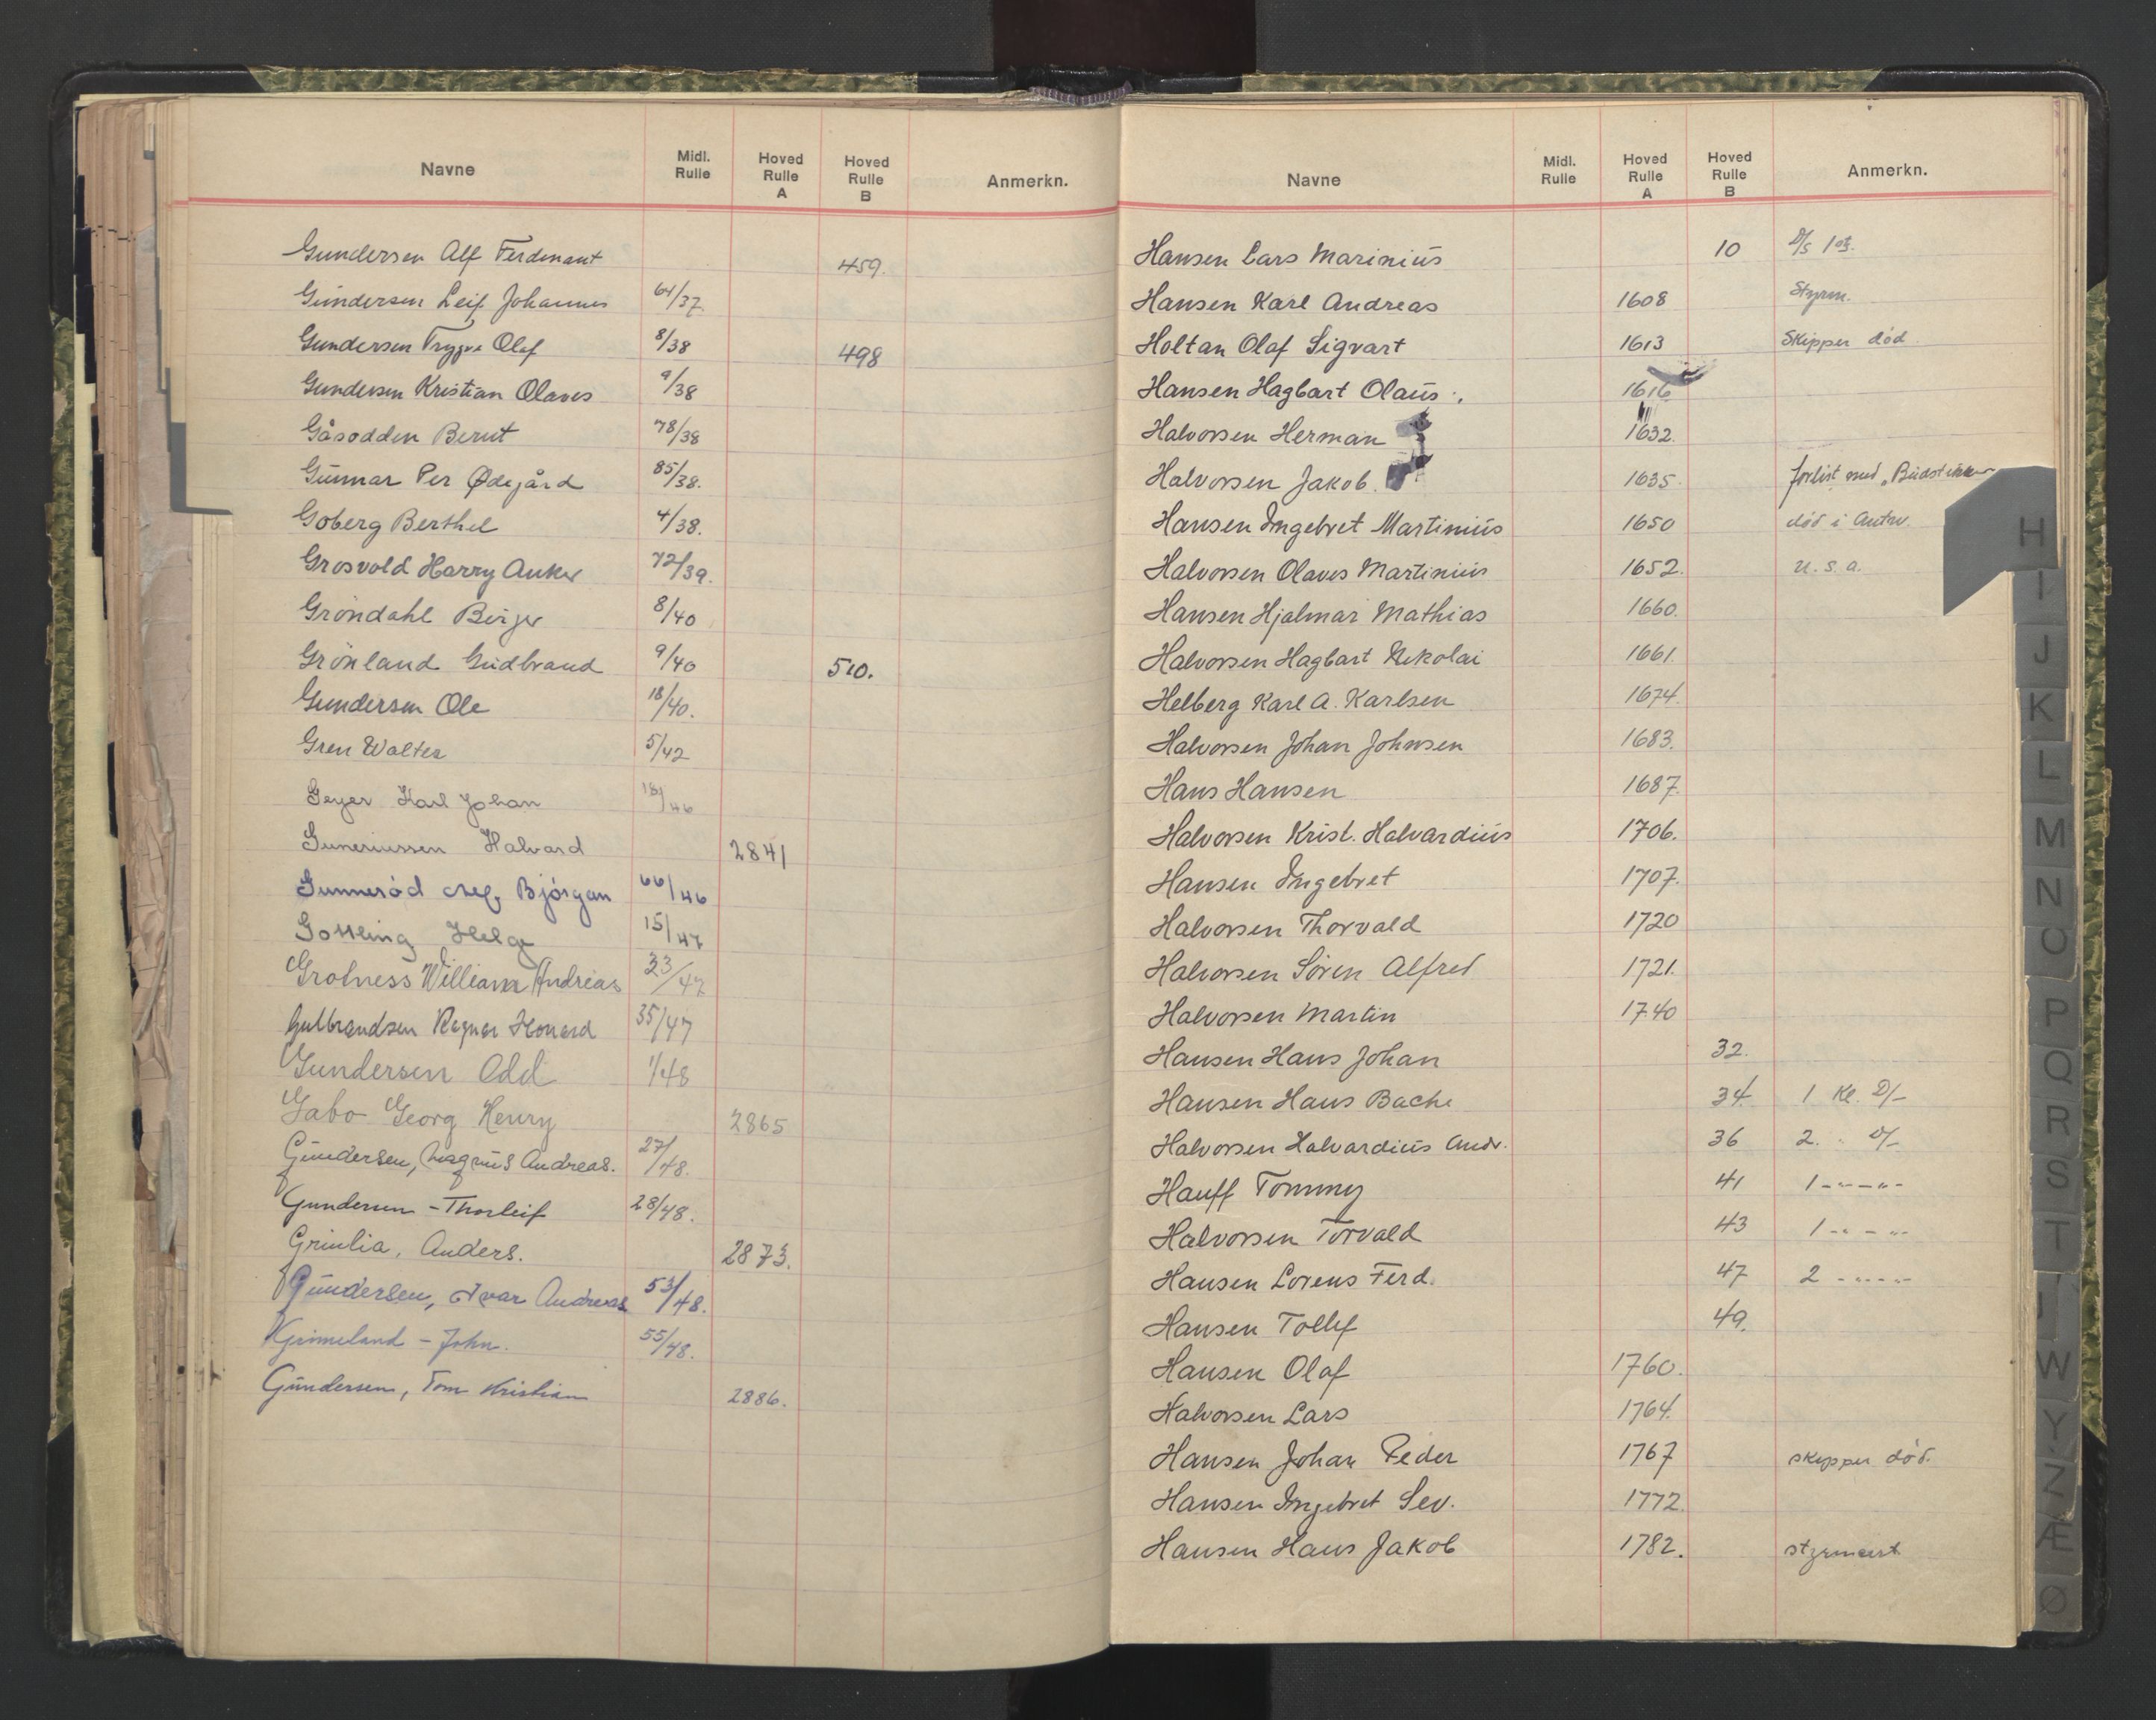 Navne Midl. Rulle Hoved Rulle A Hoved Rulle B Anmerkn.
Gundersen Alf Ferdinant 459.
Gundersen Leif Johannes 64/37
Gundersen Trygve Olaf 8/38 498
Gundersen Kristian Olaves 9/38
Gåsodden Bernt 78/38
Gunnar Per Ødegård 85/38.
Goberg Berthel 4/38.
Grosvold Harry Anker 72/39.
Gröndahl Birger 8/40
Grönland Gudbrand 9/40 510.
Gundersen Ole 18/40.
Gren Walter 5/42
Geyer Karl Johan 18/46
Guneriussen Halvard 2841
Gunneröd Bjórgan 66/46
Helge 15/47
Grotness William Andreas 33/47
Gulbrandsen Ragnar Howard 35/47
Gundersen Odd 1/48
Gabo Georg Henry 2865
Gundersen, Magnus Andreas. 27/48.
Gundersen - Thorleif 28/48.
Grinlia, Anders. 2873.
Gundersen, Ivar Andreas 53/48.
Grimeland - John. 55/48.
Gundersen, Tom Kristian 2886.
Navne Midl. Rulle Hoved Rulle A Hoved Rulle B Anmerkn.
Hansen Lars Marinius 10 D/s
Hansen Karl Andreas 1608 Styrm.
Holtan Olaf Sigvart 1613 Skipper död.
Hansen Hagbart Olaus. 1616
Halvorsen Herman 1632.
Halvorsen Jakob. 1635. forlist med "Budstikken
Hansen Ingebret Martinius 1650 död i Antw.
Halvorsen Olaves Martinius 1652. U.S.A.
Hansen Hjalmar Mathias 1660.
Halvorsen Hagbart Nikolai 1661.
Helberg Karl A. Karlsen 1674.
Halvorsen Johan Johnsen 1683.
Hans Hansen 1687.
Halvorsen Krist. Halvardius 1706.
Hansen Ingebret 1707.
Halvorsen Thorvald 1720
Halvorsen Sören Alfred 1721.
Halvorsen Martin 1740
Hansen Hans Johan 32.
Hansen Hans Bache 34. 1 Kl. D/-
Halvorsen Halvardius Andr. 36 2. " D/-
Hauff Tommy 41 1 -"-"-
Halvorsen Torvald 43 1 -"-"-
Hansen Lorens Ferd. 47 2 -"-"-
Hansen Tollef 49.
Hansen Olaf 1760.
Halvorsen Lars 1764.
Hansen Johan Peder 1767 skipper död.
Hansen Ingebret Sev. 1772.
Hansen Hans Jakob 1782. styrmert
H
I
J
K
L
M
N
O
P
Q
R
S
T
W
Y
Z
Æ
Ø